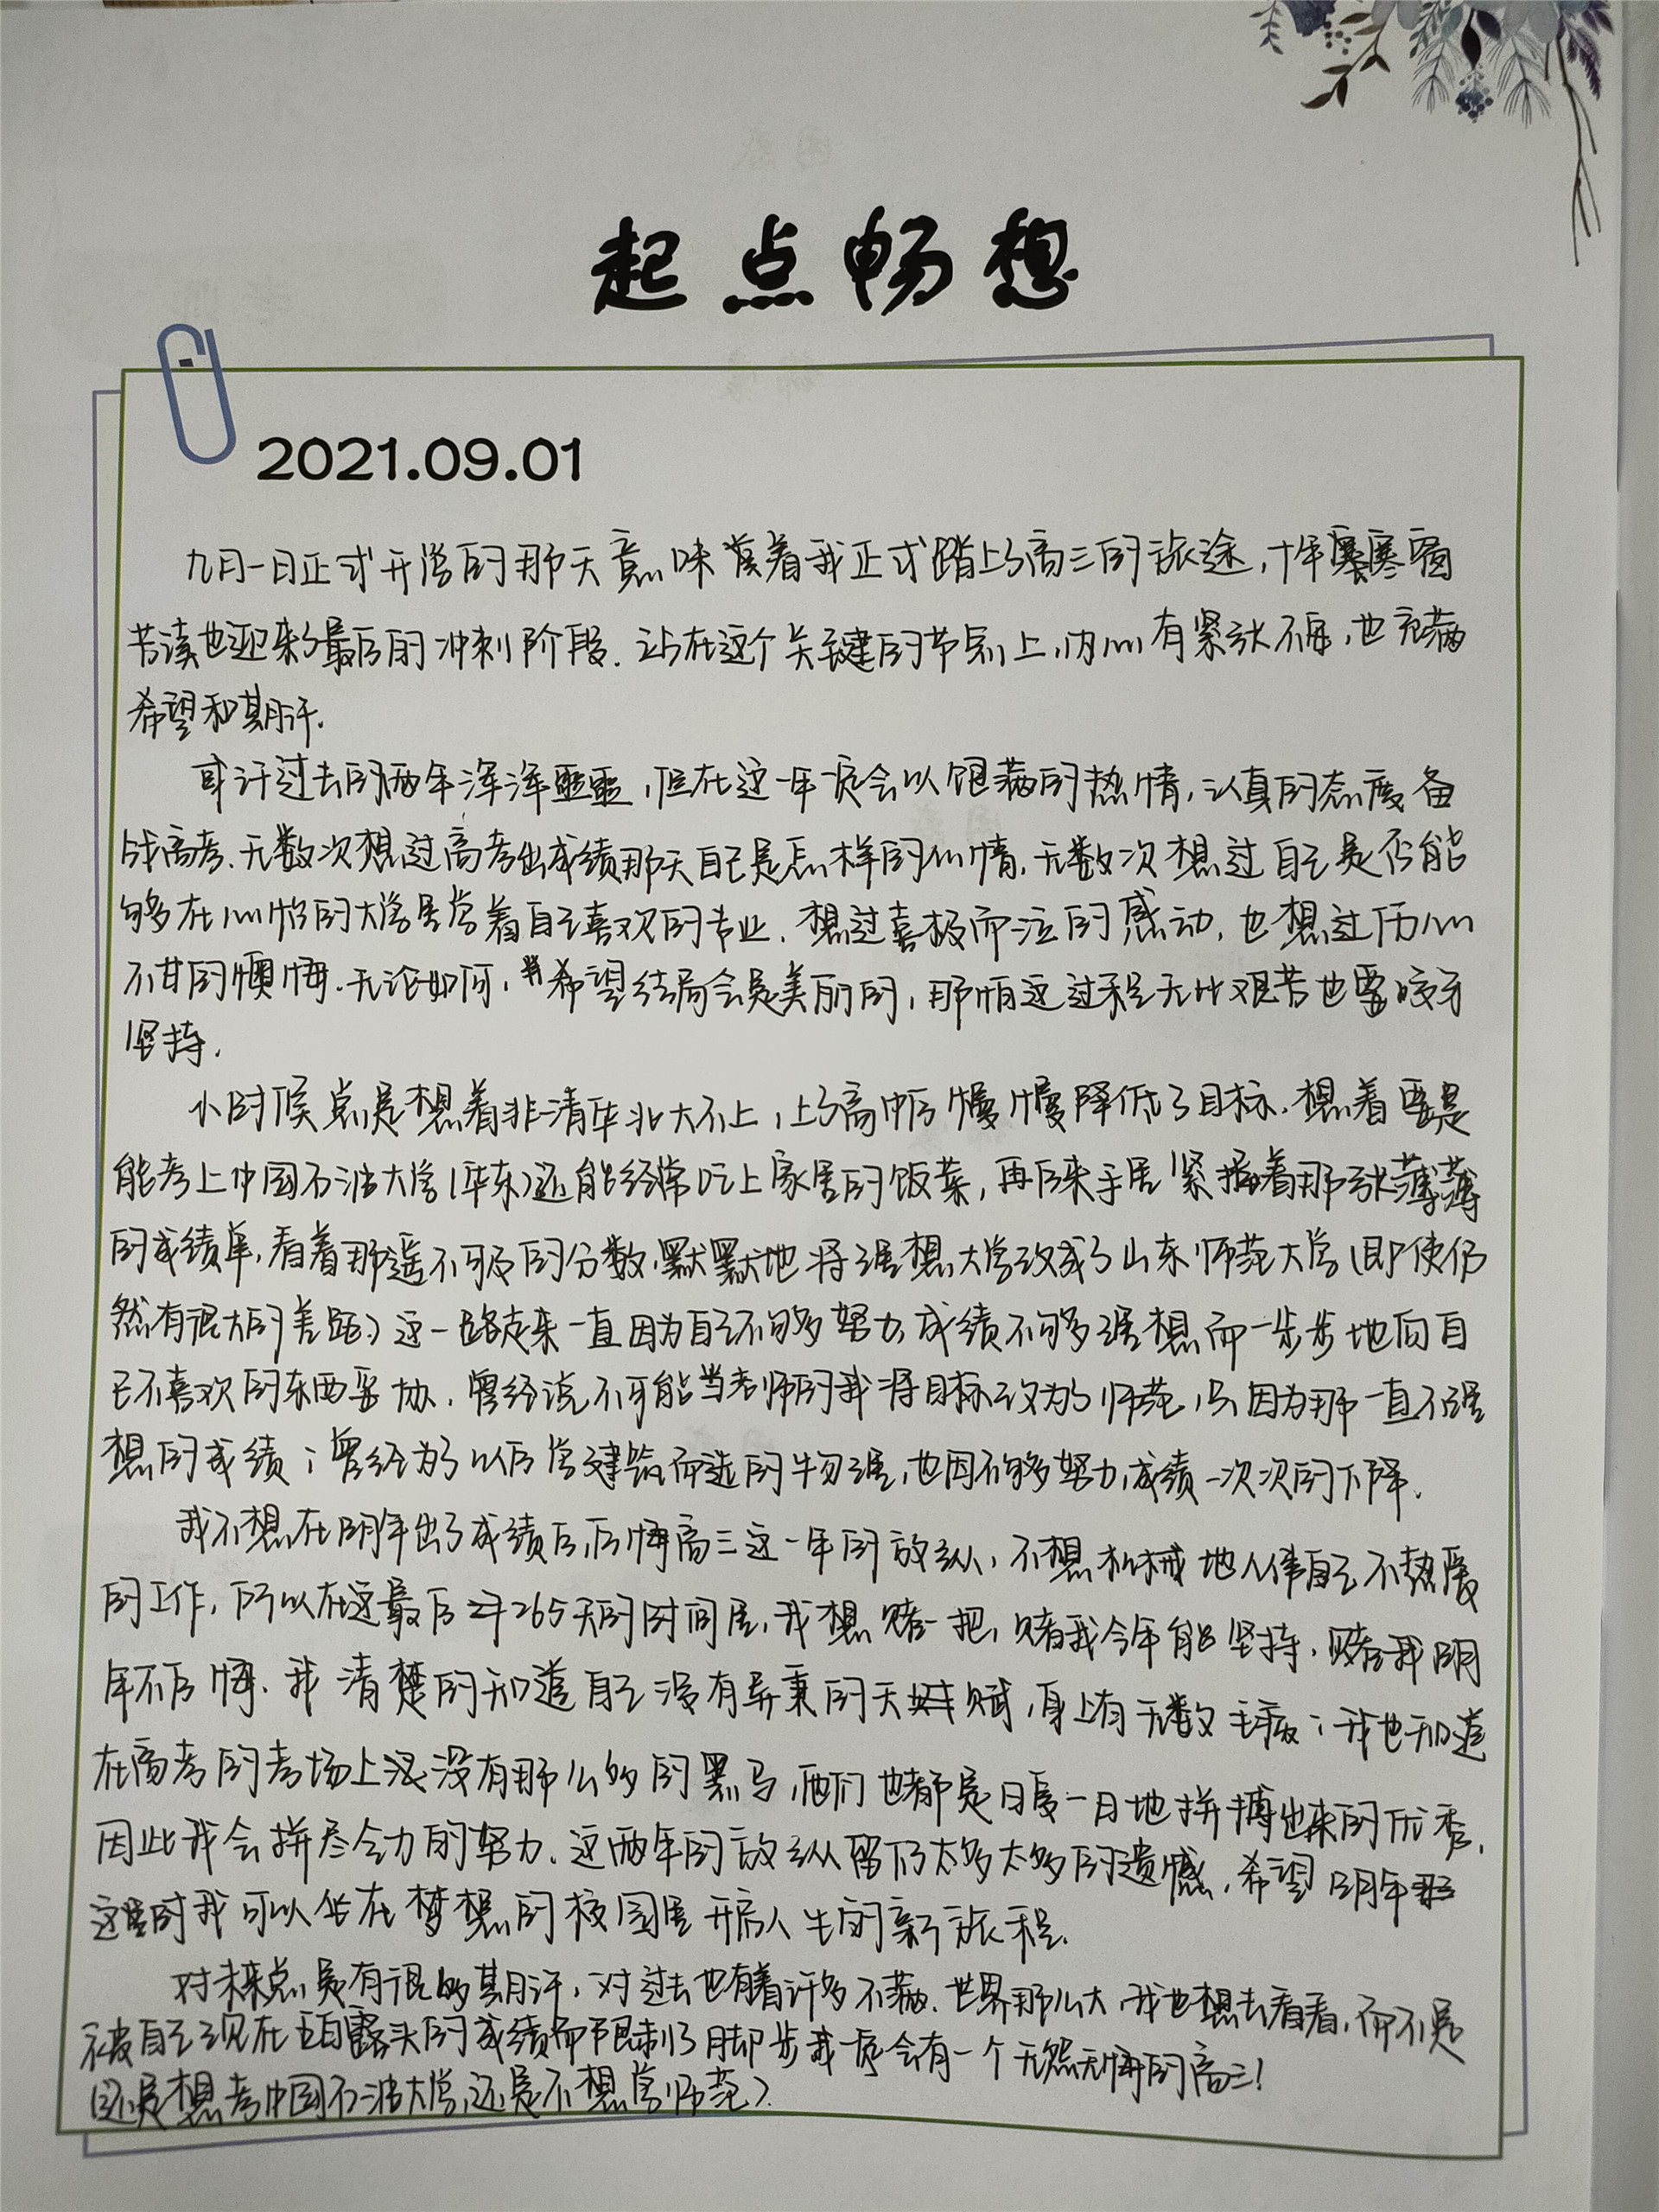 起点畅想
2021.09.01
九月一日正式开学的那天意味着我正式踏上了高三的旅途，十年寒窗
苦读也迎来了最后的冲刺阶段．站在这个关键的节点上，内心有紧张不安，也充满
希望和期许．
或许过去的两年浑浑噩噩，但在这一年一定会以饱满的热情，认真的态度备
战高考．无数次想过高考出成绩那天自己是怎样的心情，无数次想过自己是否能
够在心怡的大学里学着自己喜欢的专业．想过喜极而泣的感动，也想过历心
不甘的懊悔．无论如何，希望结局会是美丽的，那怕这过程无比艰苦也要咬牙
坚持．
小时候总是想着非清华北大不上，上了高中后慢慢降低了目标．想着要是
能考上中国石油大学(华东)还能经常吃上家里的饭菜，再后来手里紧握着那张薄薄
的成绩单，看着那遥不可及的分数，默默地将理想大学改成了山东师范大学(即使仍
然有很大的差距)这一路走来一直因为自己不够努力,成绩不够理想而一步步地向自
己不喜欢的东西妥协．曾经说不可能当老师的我将目标改为了师范，只因为那一直不理
想的成绩；曾经为了以后学建筑而选的物理，也因不够努力,成绩一次次的下降．
我不想在明年出了成绩后,后悔高三这一年的放纵，不想机械地从事自己不热爱
的工作，所以在这最后265天的时间里，我想赌一把，赌我今年能坚持，赌我明
年不后悔．我清楚的知道自己没有异禀的天赋，身上有无数毛病；我也知道
在高考的考场上没有那么多的黑马，他们也都是日复一日地拼搏出来的优秀．
因此我会拼尽全力的努力．这两年的放纵留下了太多太多的遗憾，希望明年
这时我可以坐在梦想的校园里开启人生的新旅程．
对未来总是有很多期许，对过去也有着许多不满．世界那么大，我也想去看看，而不是
被自己现在的成绩而限制了脚步我一定会有一个无怨无悔的高三！
(还是想考中国石油大学,还是不想学师范)